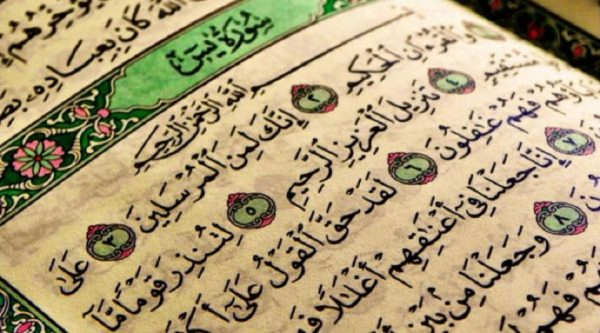 ٱللَّهَ كَانَ بِعِبَادِهِۦ
سُورَةُ يسٓ
ٱللَّهِ ٱلرَّحْمَٰنِ ٱلرَّحِيمِ
وَٱلْقُرْءَانِ ٱلْحَكِيمِ ٢ إِنَّكَ لَمِنَ ٱلْمُرْسَلِينَ ٣ عَلَىٰ
مُّسْتَقِيمٍ ٤ تَنزِيلَ ٱلْعَزِيزِ ٱلرَّحِيمِ ٥ لِتُنذِرَ قَوْمًا مَّآ
فَهُمْ غَٰفِلُونَ ٦ لَقَدْ حَقَّ ٱلْقَوْلُ عَلَىٰٓ
٧ إِنَّا جَعَلْنَا فِىٓ أَعْنَٰقِهِمْ أَغْلَٰلًا
٨ وَجَعَلْنَا مِنۢ بَيْنِ